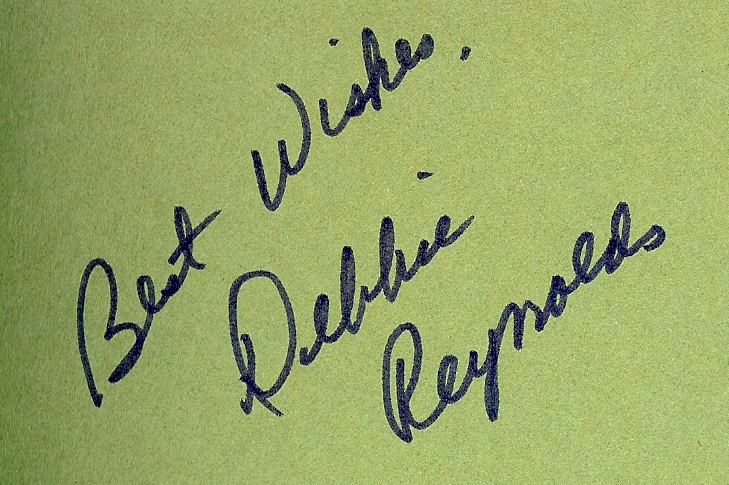 Best Wishes.
Debbie
Reynolds